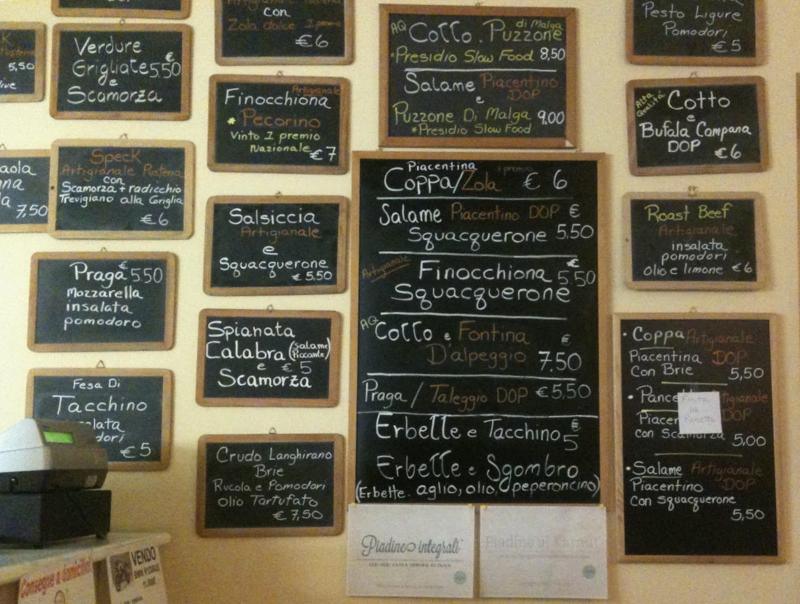 5,50
7,50
Verdure
€
Grigliate 5,50
e
Scamorza
Speck
Artigianale
con
Scamorza + radicchio
Trevigiano alla Griglia
€ 6
Praga € 5,50
mozzarella
insalata
pomodoro
Fesa Di
Tacchino
€ 5
con
Zola dolce
€ 6
Artigianale
Finocchiona
* Pecorino
Vinto I premio
Nazionale
€ 7
Salsiccia
Artigianale
e
Squacquerone
€ 5,50
Spianata
Calabra (salame
Piccante)
e € 5
Scamorza
Crudo Langhirano
Brie
Rucola e Pomodori
Olio Tartufato
€ 7,50
AQ Cotto e Puzzone di Malga
*Presidio Slow Food 8,50
Salame Piacentino
e DOP
Puzzone Di Malga 9,00
*Presidio Slow Food
Piacentina
Coppa/Zola € 6
Salame Piacentino DOP €
Squacquerone 5,50
Artigianale
Finocchiona €
5,50
Squacquerone
AQ
Cotto e Fontina €
D'alpeggio 7,50
Praga / Taleggio DOP € 5,50
Erbette e Tacchino 5
Erbette e Sgombro
(Erbette aglio, olio, peperoncino)
Piadine integrali
Piadine al Kamut
Pesto Ligure
Pomodori
€ 5
Alta
Qualità
Cotto
e
Bufala Campana
DOP
€ 6
Roast Beef
Artigianale
insalata
pomodori
olio e limone € 6
• Coppa Artigianale
Piacentina DOP
Con Brie 5,50
con Scamorza 5,00
• Salame Artigianale
Piacentino DOP
Con Squacquerone
5,50
Consegne a domicilio!
VENDO